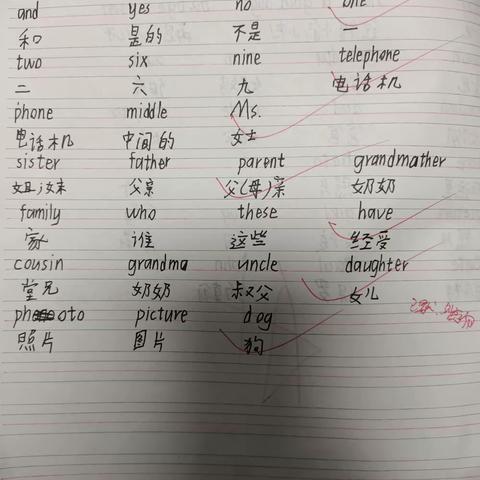 and yes no one
和 是的 不是 一
two six nine telephone
二 六 九 电话机
phone middle Ms.
电话机 中间的 女士
sister father parent grandmather
姐;妹 父亲 父(母)亲 奶奶
family who these have
家 谁 这些 经受
cousin grandma uncle daughter
堂兄 奶奶 叔父 女儿
photo picture dog
照片 图片 狗